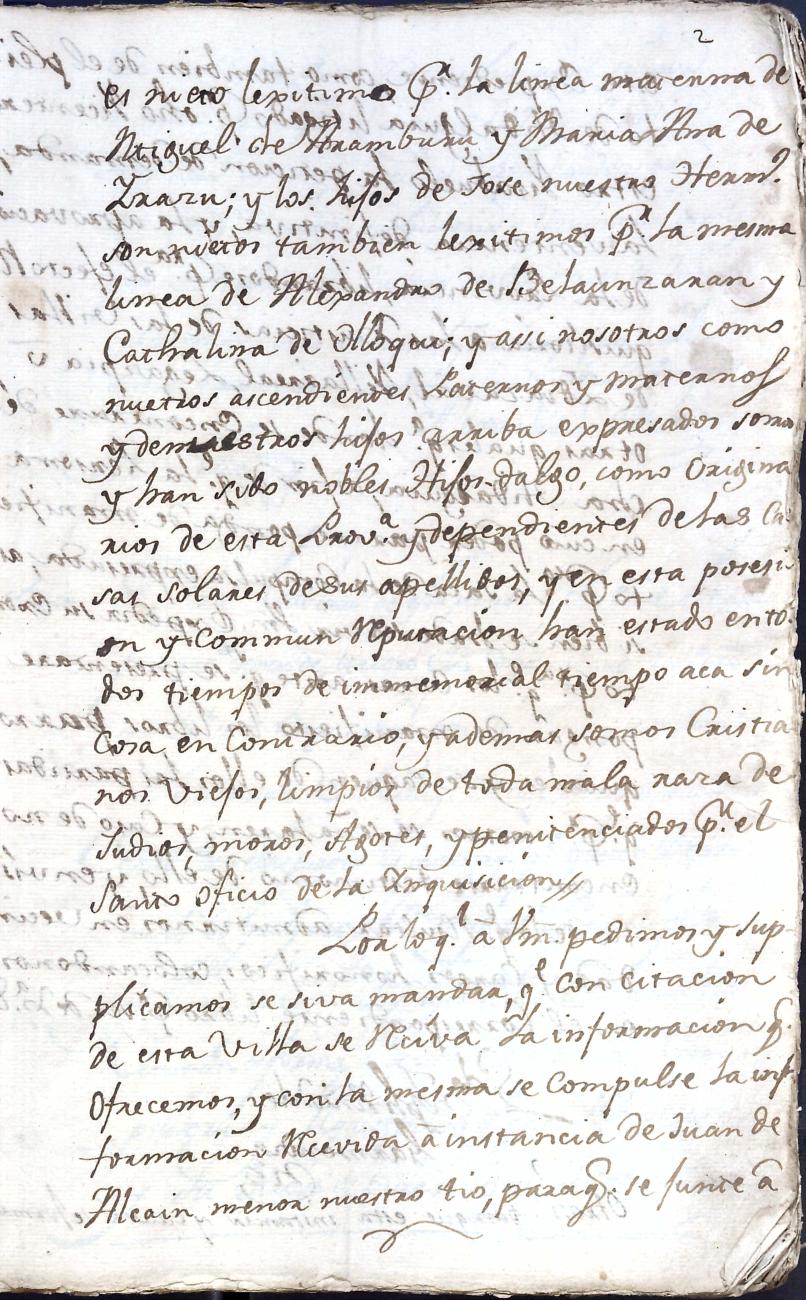 2
es nieto lexitimo pr. la linea materna de
Miguel de Aramburu y Maria Ana de
Yrazu; y los hijos de Jose nuestro Hermo.
son nietos tambien lexitimos pr. la mesma
linea de Alexandro de Belaunzaran y
Cathalina de Olloqui; y assi nosotros como
nuetros ascendientes Paternos y maternos
y demas nuestros hijos arriba expresados somos
y han sido nobles Hijos-dalgo, como Origina
rios de esta Prova. y dependientes de las Ca
sas solares de sus apellidos, y en esta posesi
on y Commun Reputacion han estado en to
dos tiempos de immemorial tiempo aca sin
cosa en Contrario, y ademas somos Cristia
nos Viejos, limpios de toda mala raza de
Judios, moros, Agotes, y penitenciados pr. el
Santo Oficio de la Inquisicion//
Por lo q.l â Vm. pedimos y sup-
plicamos se siva mandar, q.e con citacion
de esta Villa se Reciva la informacion q.
Ofrecemos, y con la mesma se Compulse la inf-
formacion Recivida â instancia de Juan de
Alcain menor nuestro tio, para q. se junte â